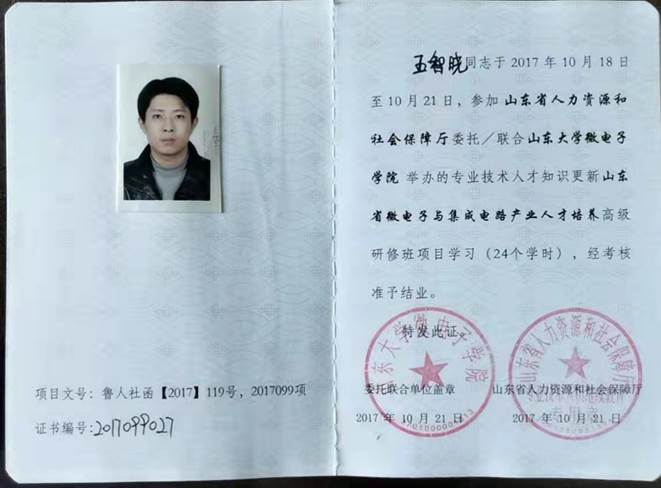 项目文号：鲁人社函【2017】119号，2017099项
证书编号：2017099027
王智晓同志于 2017 年 10 月 18日
至 10 月 21 日，参加 山东省人力资源和
社会保障厅委托／联合山东大学微电子
学院 举办的专业技术人才知识更新山东
省微电子与集成电路产业人才培养高级
研修班项目学习（24个学时），经考核
准予结业。
特发此证。
委托联合单位盖章
2017 年 10 月 21 日
东大学微电子学院
山东省人力资源和社会保障厅
2017 年 10 月 21 日
山东省人力资源和社会保障
专用章